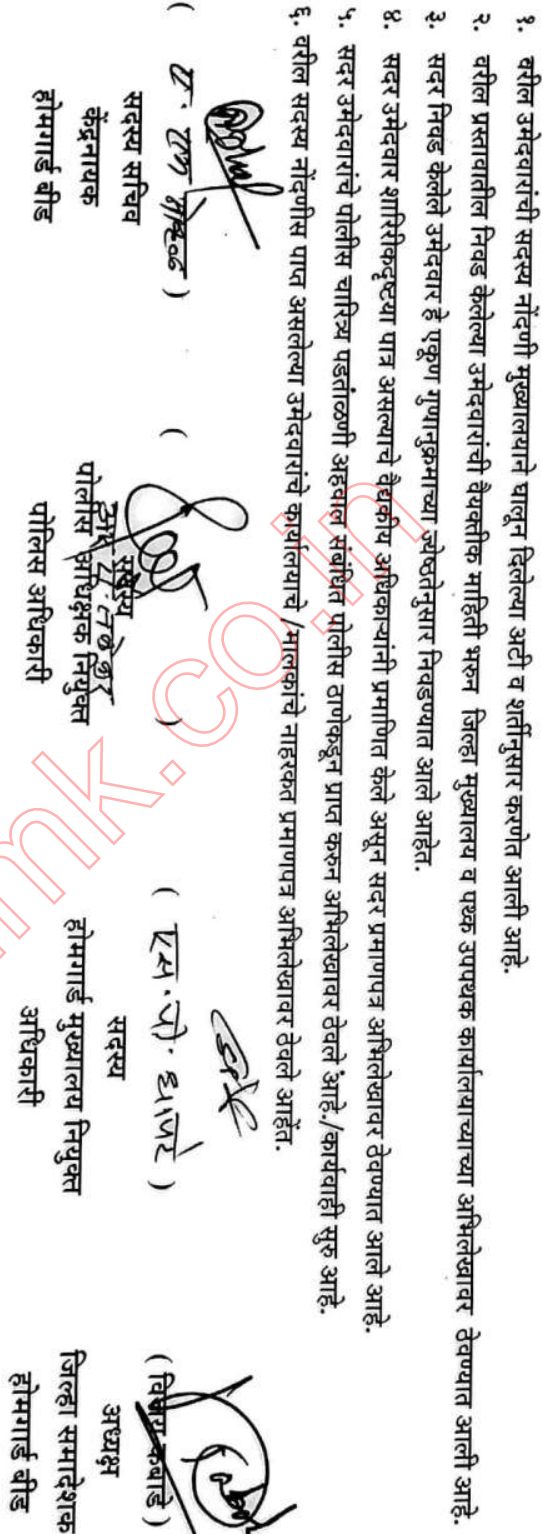 १. वरील उमेदवारांची सदस्य नोंदणी मुख्यालयाने घालून दिलेल्या अटी व शर्तीनुसार करणेत आली आहे.
२. वरील प्रस्तावातील निवड केलेल्या उमेदवारांची वैयक्तीक माहिती भरुन जिल्हा मुख्यालय व पथक उपपथक कार्यालयाच्या अभिलेखावर ठेवण्यात आली आहे.
३. सदर निवड केलेले उमेदवार हे एकूण गुणानुक्रमाच्या ज्येष्ठतेनुसार निवडण्यात आले आहेत.
४. सदर उमेदवार शारिरीकदृष्टया पात्र असल्याचे वैद्यकीय अधिकाऱ्यांनी प्रमाणित केले असून सदर प्रमाणपत्र अभिलेखावर ठेवण्यात आले आहे.
५. सदर उमेदवारांचे पोलीस चारित्र्य पडताळणी अहवाल संबंधित पोलीस ठाणेकडून प्राप्त करुन अभिलेखावर ठेवले आहे./कार्यवाही सुरु आहे.
६. वरील सदस्य नोंदणीस पात्र असलेल्या उमेदवारांचे कार्यालयाचे /मालकांचे नाहरकत प्रमाणपत्र अभिलेखावर ठेवले आहेत.
( ) ( ) ( एस. पी. धापटे ) ( विजय कबाडे )
सदस्य सचिव सदस्य सदस्य अध्यक्ष
केंद्रनायक पोलीस अधिक्षक नियुक्त होमगार्ड मुख्यालय नियुक्त जिल्हा समादेशक
होमगार्ड बीड पोलिस अधिकारी अधिकारी होमगार्ड बीड
mk.co.in